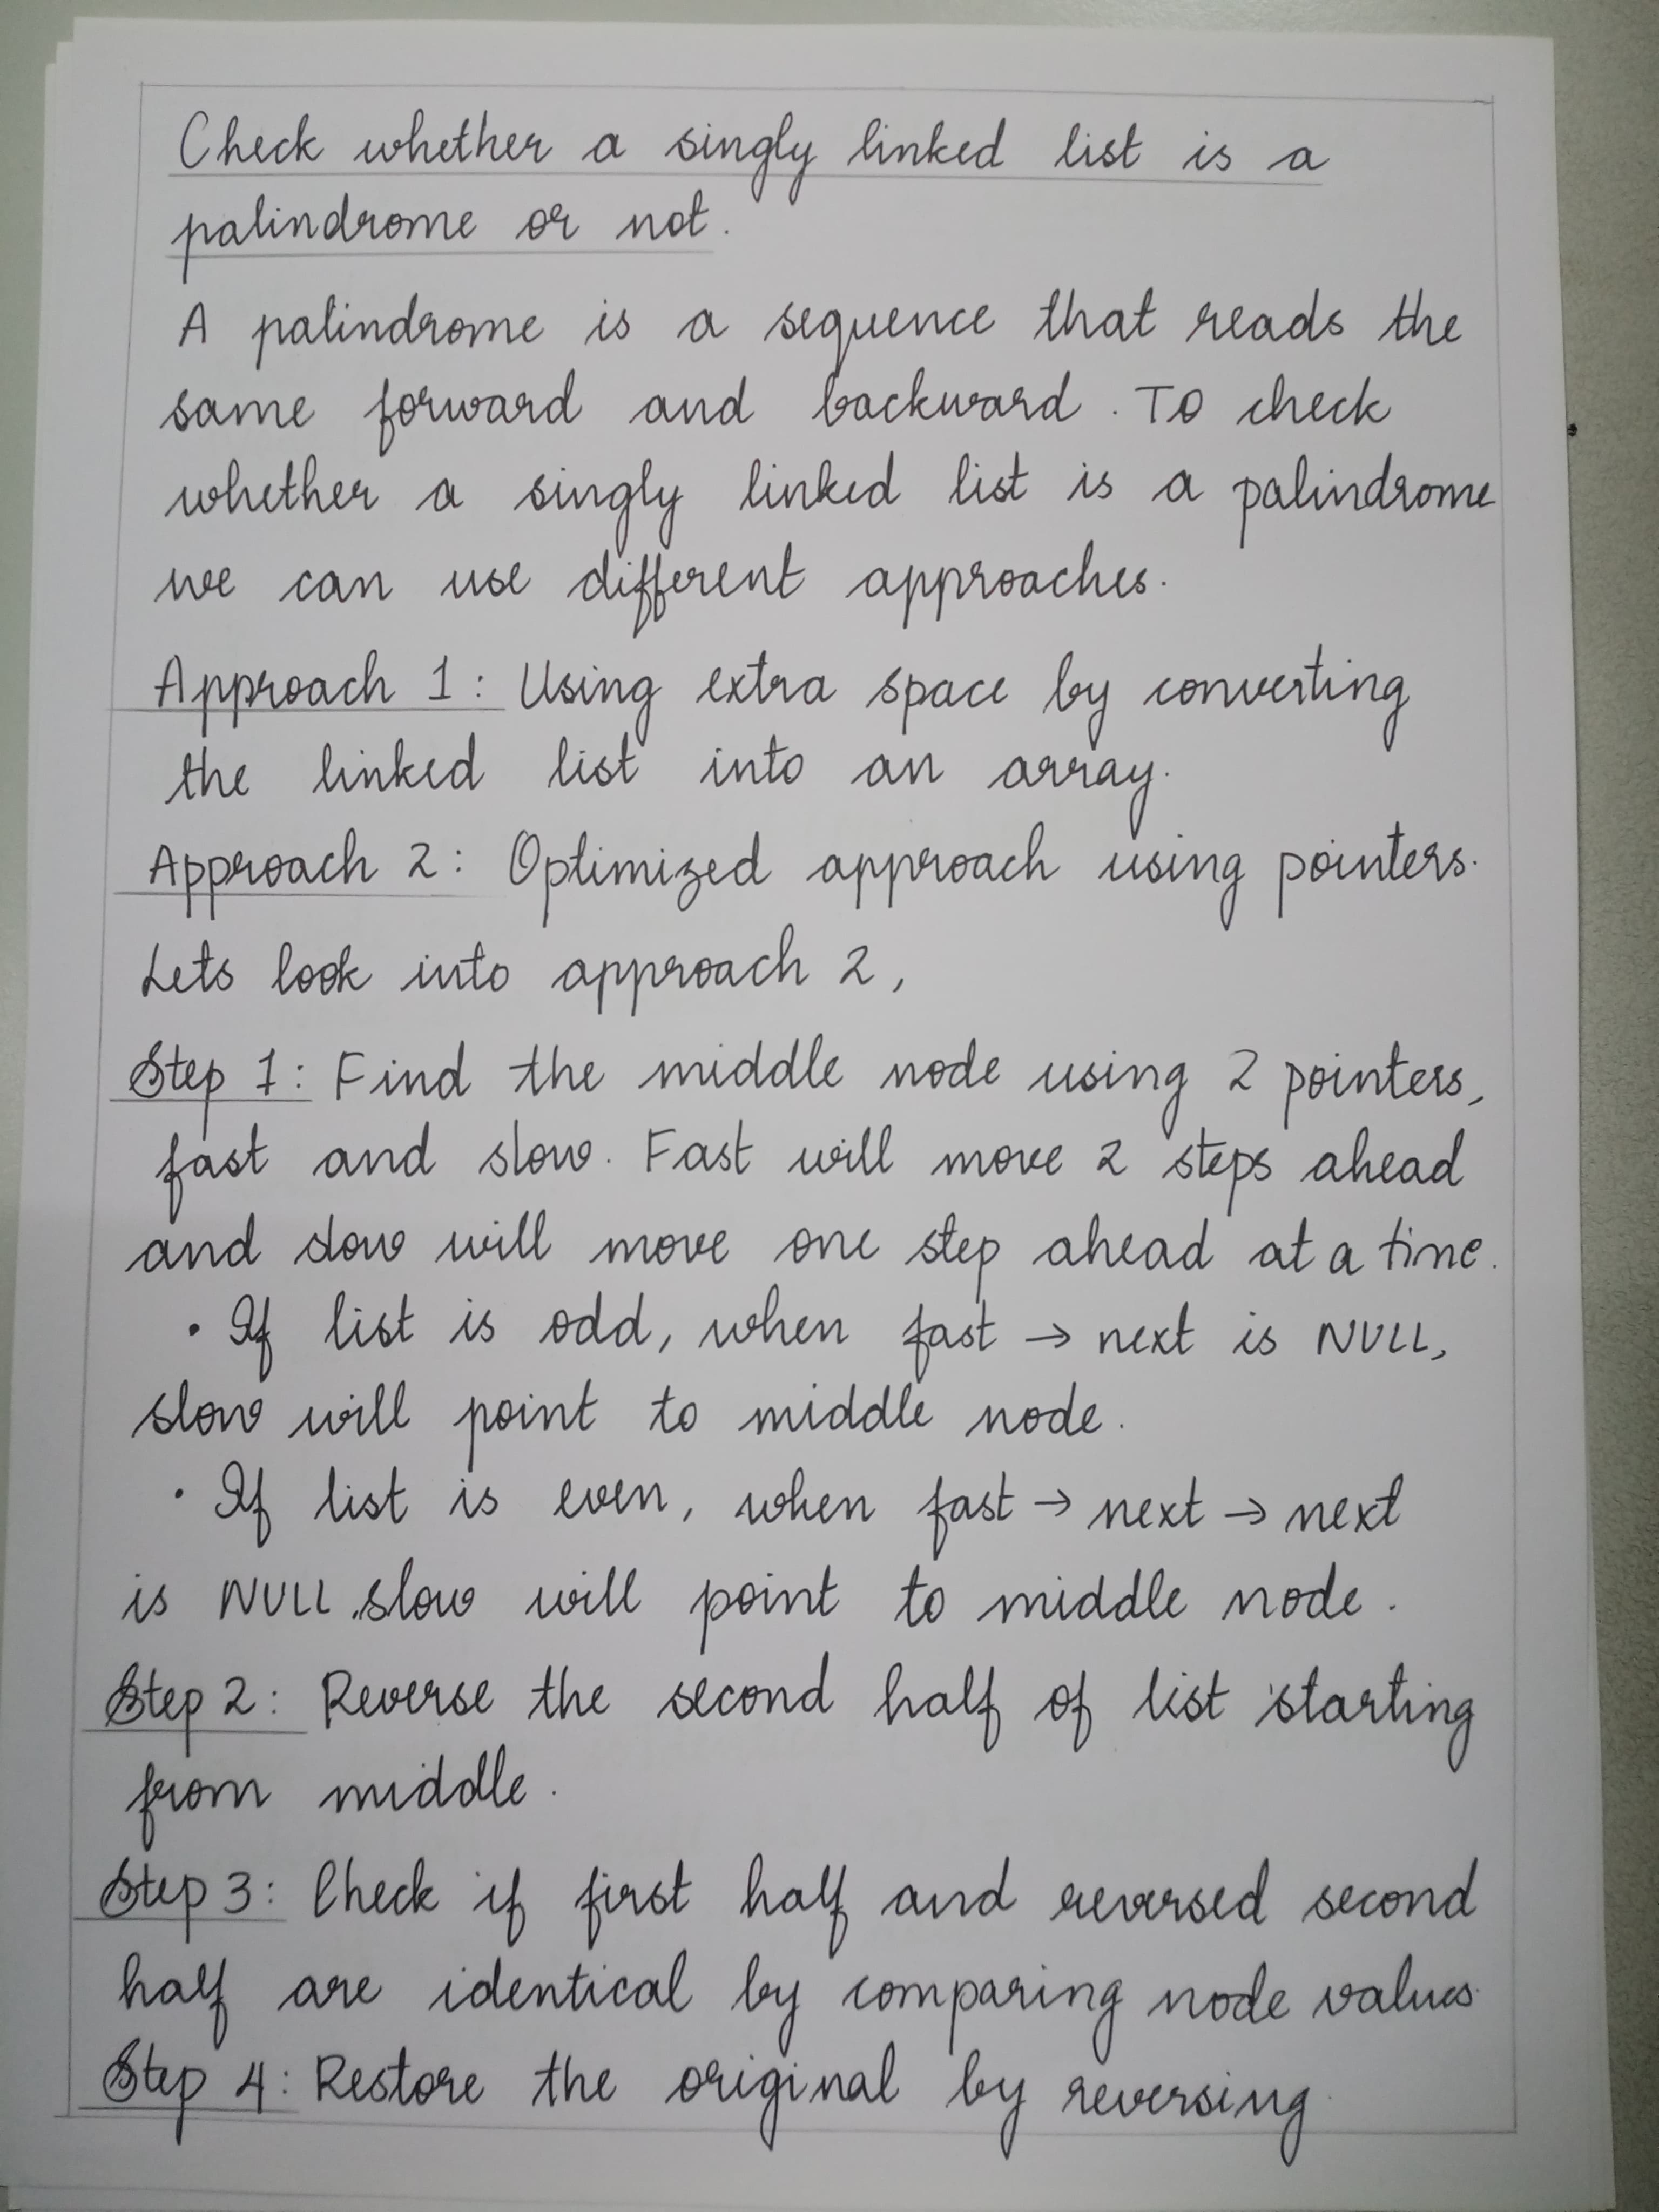 Check whether a singly linked list is a
palindrome or not.
A palindrome is a sequence that reads the
same forward and backward. To check
whether a singly linked list is a palindrome
we can use different approaches.
Approach 1: Using extra space by converting
the linked list into an array.
Approach 2: Optimized approach using pointers.
Lets look into approach 2,
Step 1: Find the middle node using 2 pointers,
fast and slow. Fast will move 2 steps ahead
and slow will move one step ahead at a time.
• If list is odd, when fast → next is NULL,
slow will point to middle node.
• If list is even, when fast → next → next
is NULL, slow will point to middle node.
Step 2: Reverse the second half of list starting
from middle.
Step 3: Check if first half and reversed second
half are identical by comparing node values.
Step 4: Restore the original by reversing.